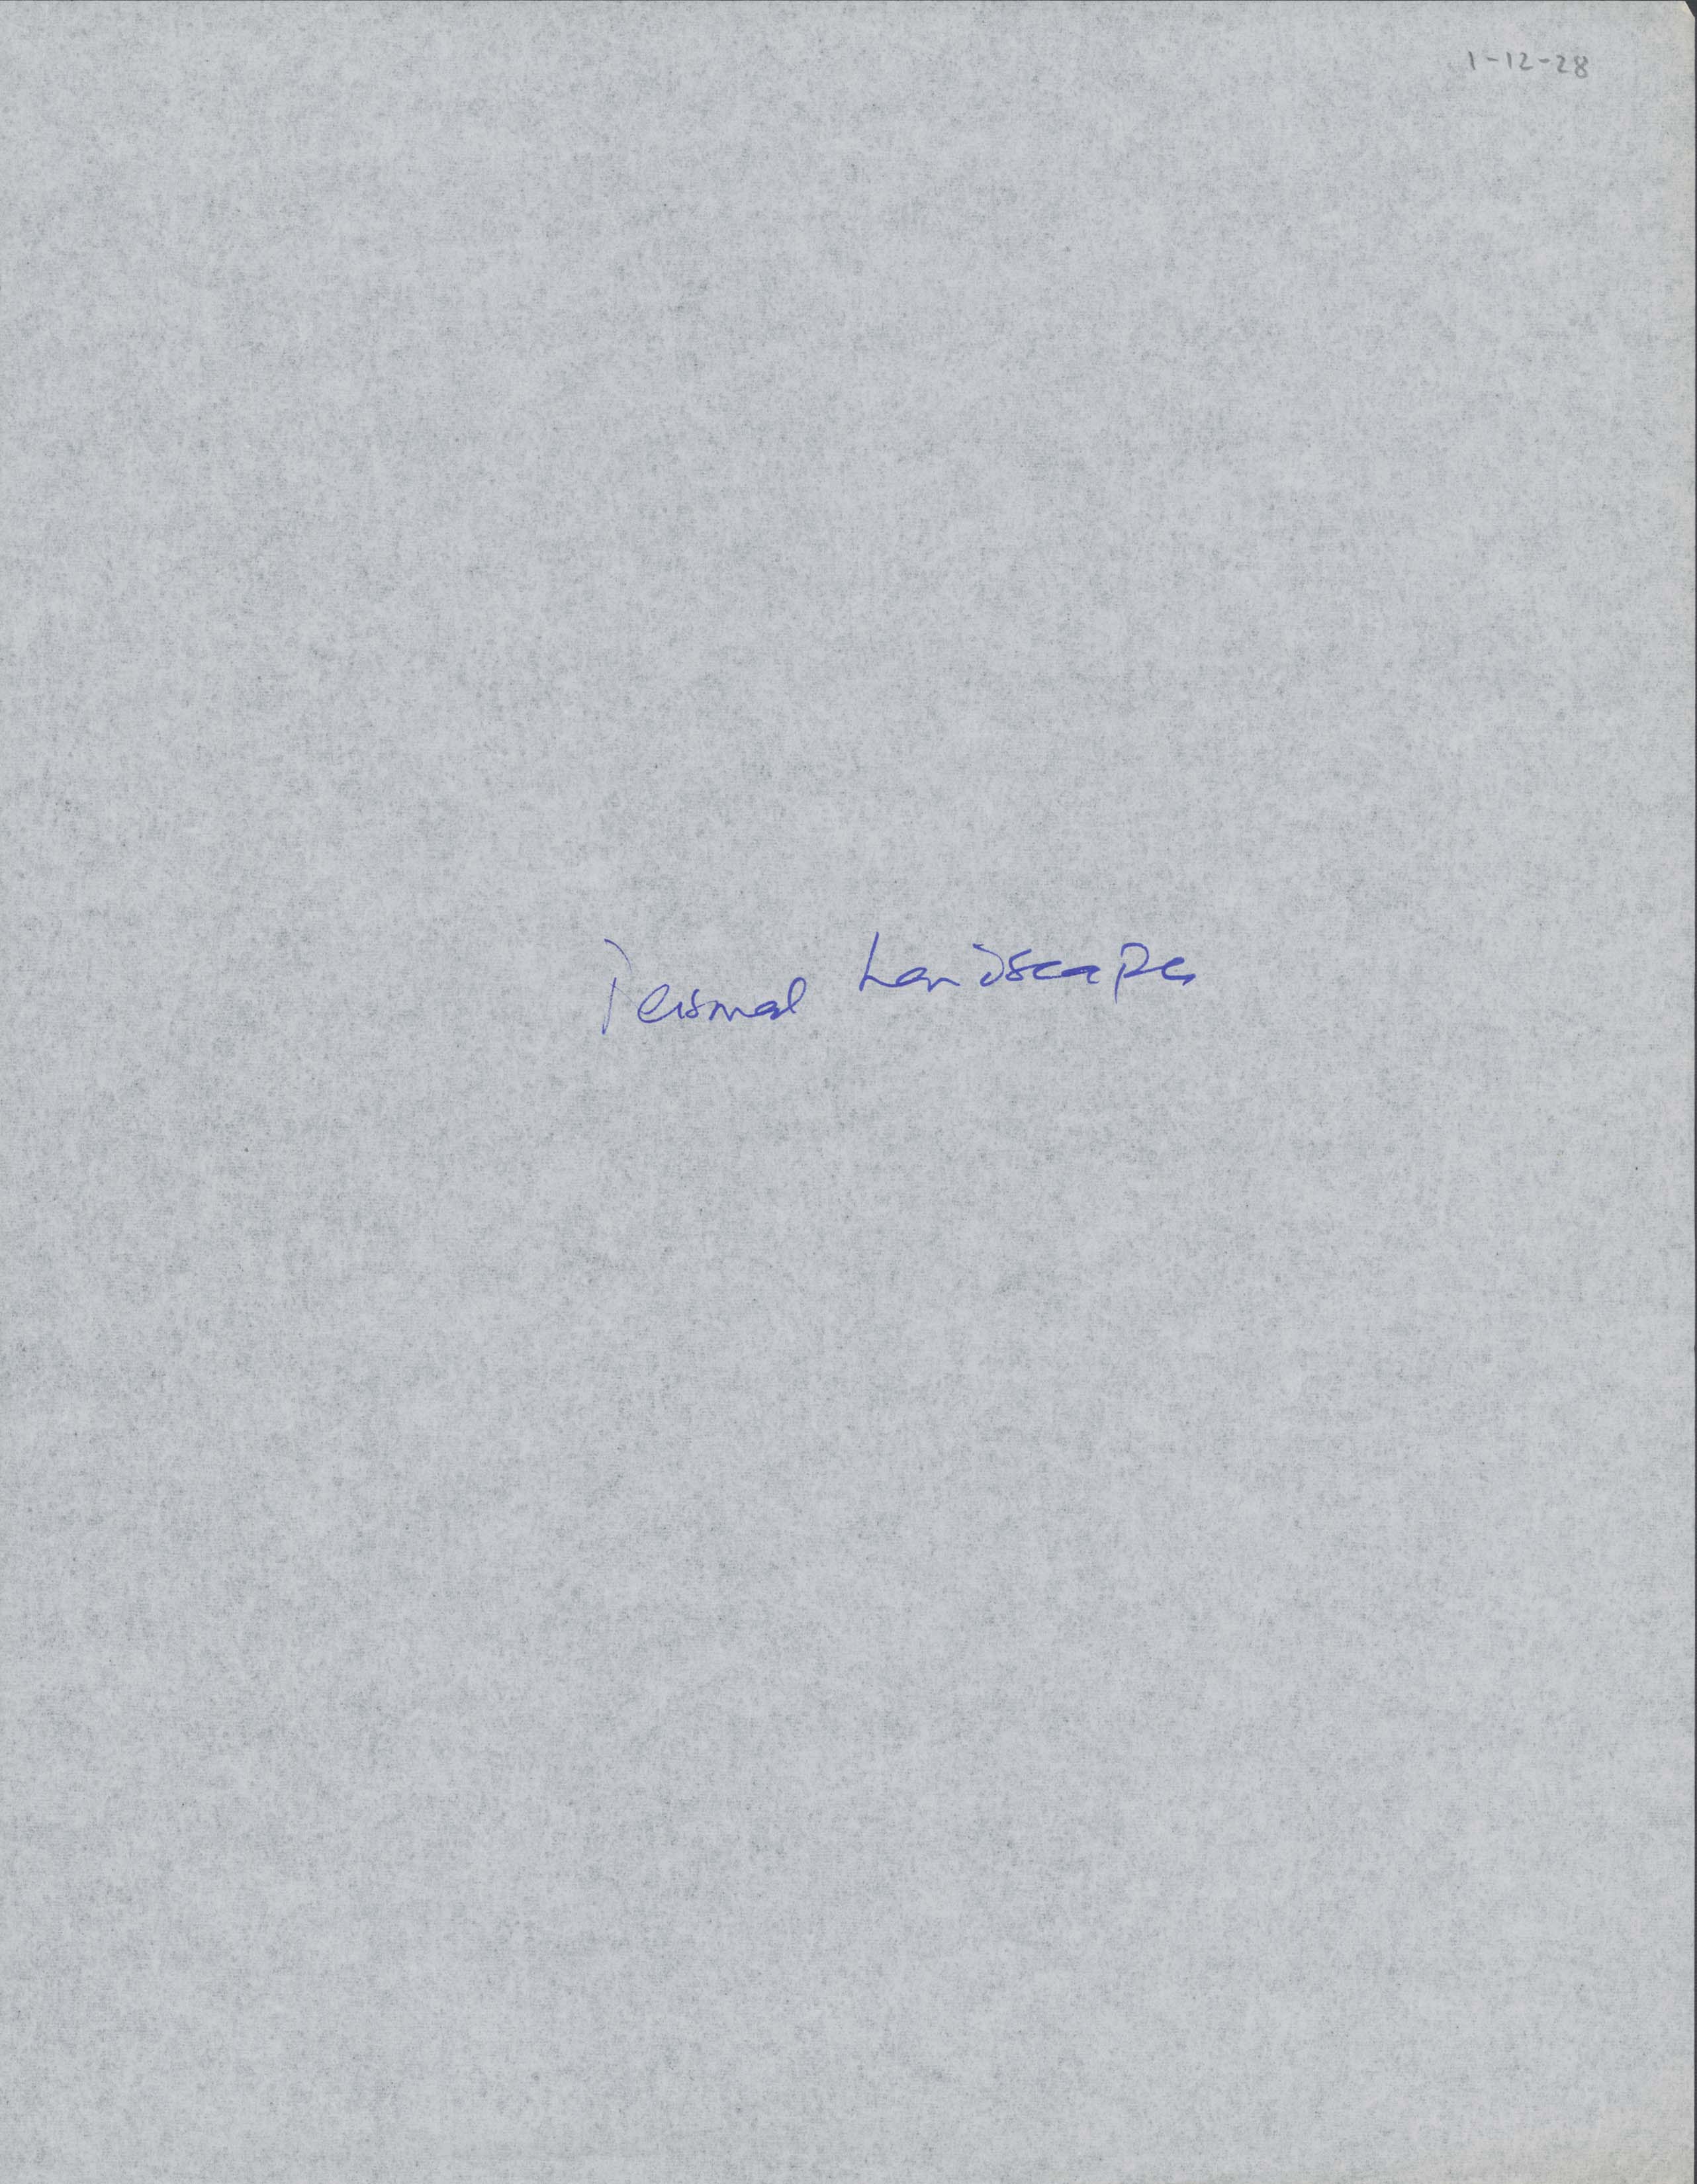 1-12-28
Personal Landscapes